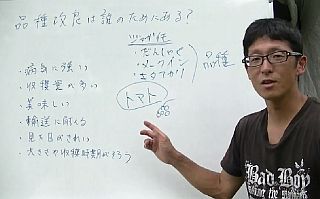 品種改良は誰のためにある?
・病気に強い
・収穫量の多い
・美味しい
・輸送に耐える
・見た目がきれい
・大きさや収穫時期がそろう
じゃがいも
・だんしゃく
・メークイン
・キタアカリ
品種
トマト
Bad Boy